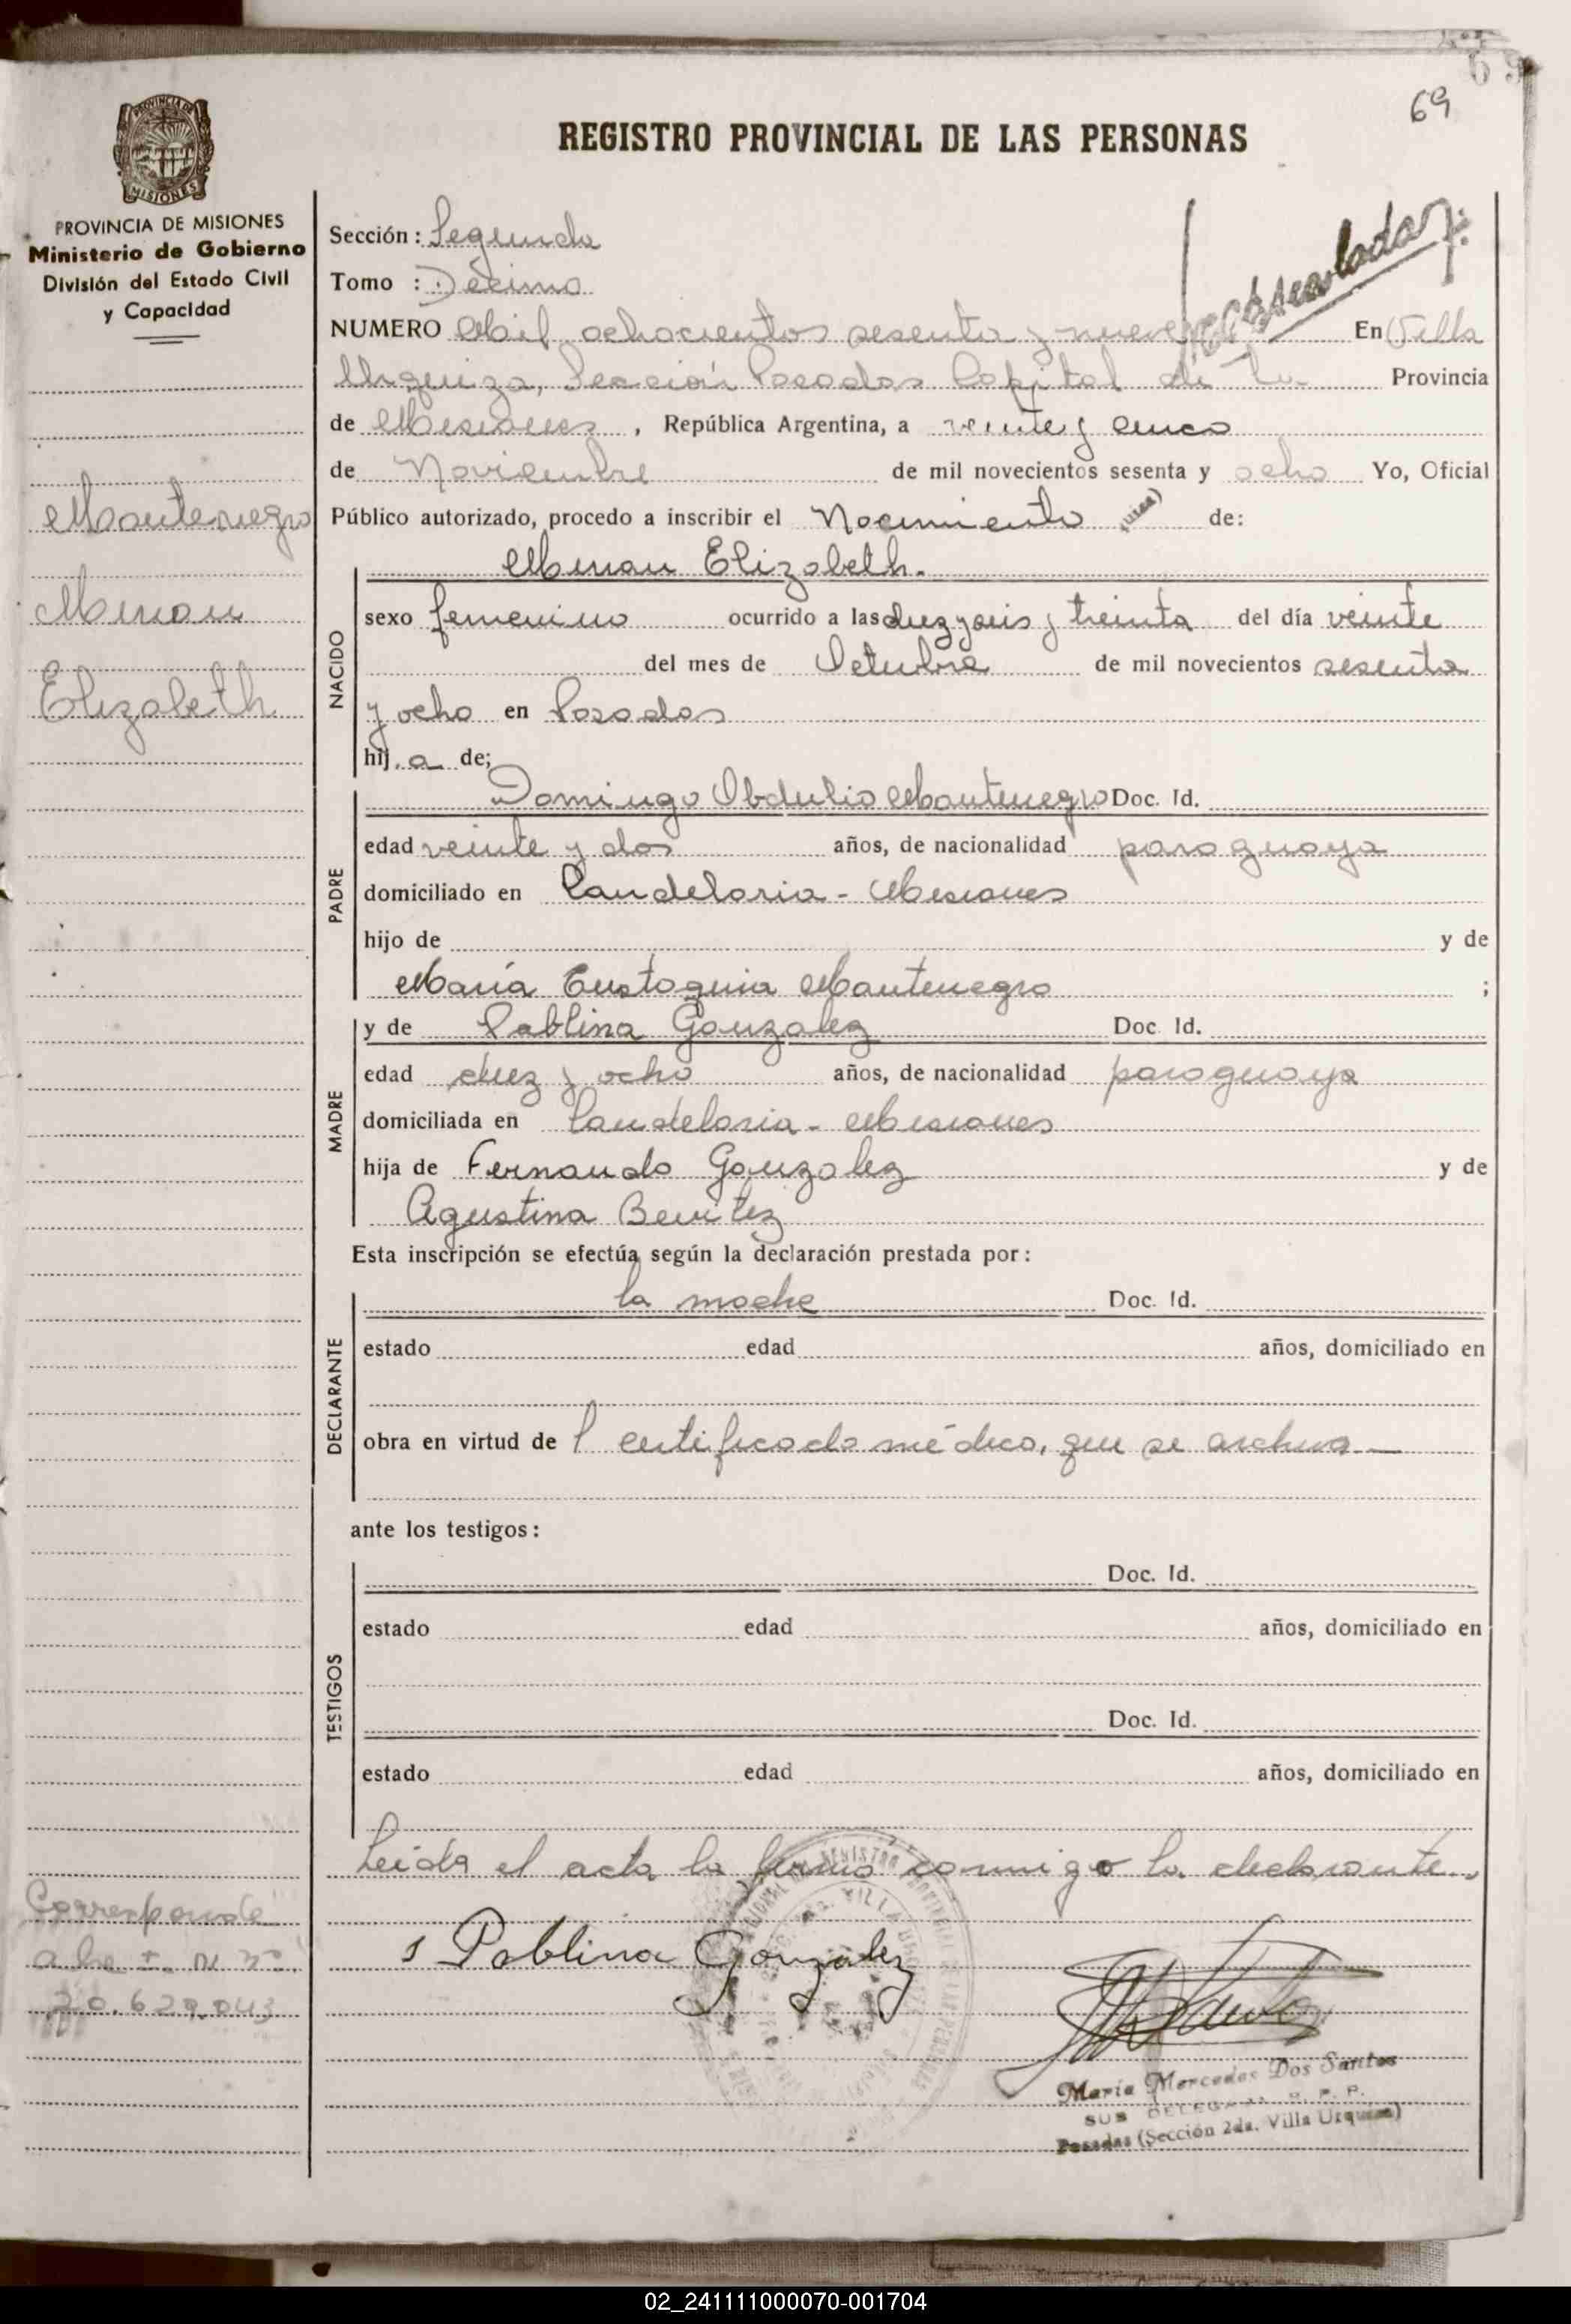 69
REGISTRO PROVINCIAL DE LAS PERSONAS
PROVINCIA DE
MISIONES
PROVINCIA DE MISIONES
Ministerio de Gobierno
División del Estado Civil
y Capacidad
Montenegro
Mirian
Elizabeth
Corresponde
20.629.043
Sección : Segunda
Tomo : Décimo
NUMERO Mil ochocientos sesenta y nueve En Villa
Urquiza, Sección Posadas Capital de la Provincia
de Misiones , República Argentina, a veinte y cinco
de Noviembre de mil novecientos sesenta y ocho Yo, Oficial
Público autorizado, procedo a inscribir el Nacimiento de:
NACIDO
Mirian Elizabeth.
sexo femenino ocurrido a las diez y seis y treinta del día veinte
del mes de Octubre de mil novecientos sesenta
y ocho en Posadas
hij a de;
PADRE
Domingo Obdulio Montenegro Doc. Id.
edad veinte y dos años, de nacionalidad paraguaya
domiciliado en Candelaria - Misiones
hijo de y de
María Eustoquia Montenegro ;
MADRE
y de Pablina Gonzalez Doc. Id.
edad diez y ocho años, de nacionalidad paraguaya
domiciliada en Candelaria - Misiones
hija de Fernando Gonzalez y de
Agustina Benitez
Esta inscripción se efectúa según la declaración prestada por :
DECLARANTE
la madre Doc. Id.
estado edad años, domiciliado en
obra en virtud de l certificado médico, que se archiva
ante los testigos :
TESTIGOS
Doc. Id.
estado edad años, domiciliado en
Doc. Id.
estado edad años, domiciliado en
Leída el acta la firmó conmigo la declarante.
Pablina Gonzalez
María Mercedes Dos Santos
SUB DELEGADA R. P. P.
Posadas (Sección 2da. Villa Urquiza)
02_241111000070-001704